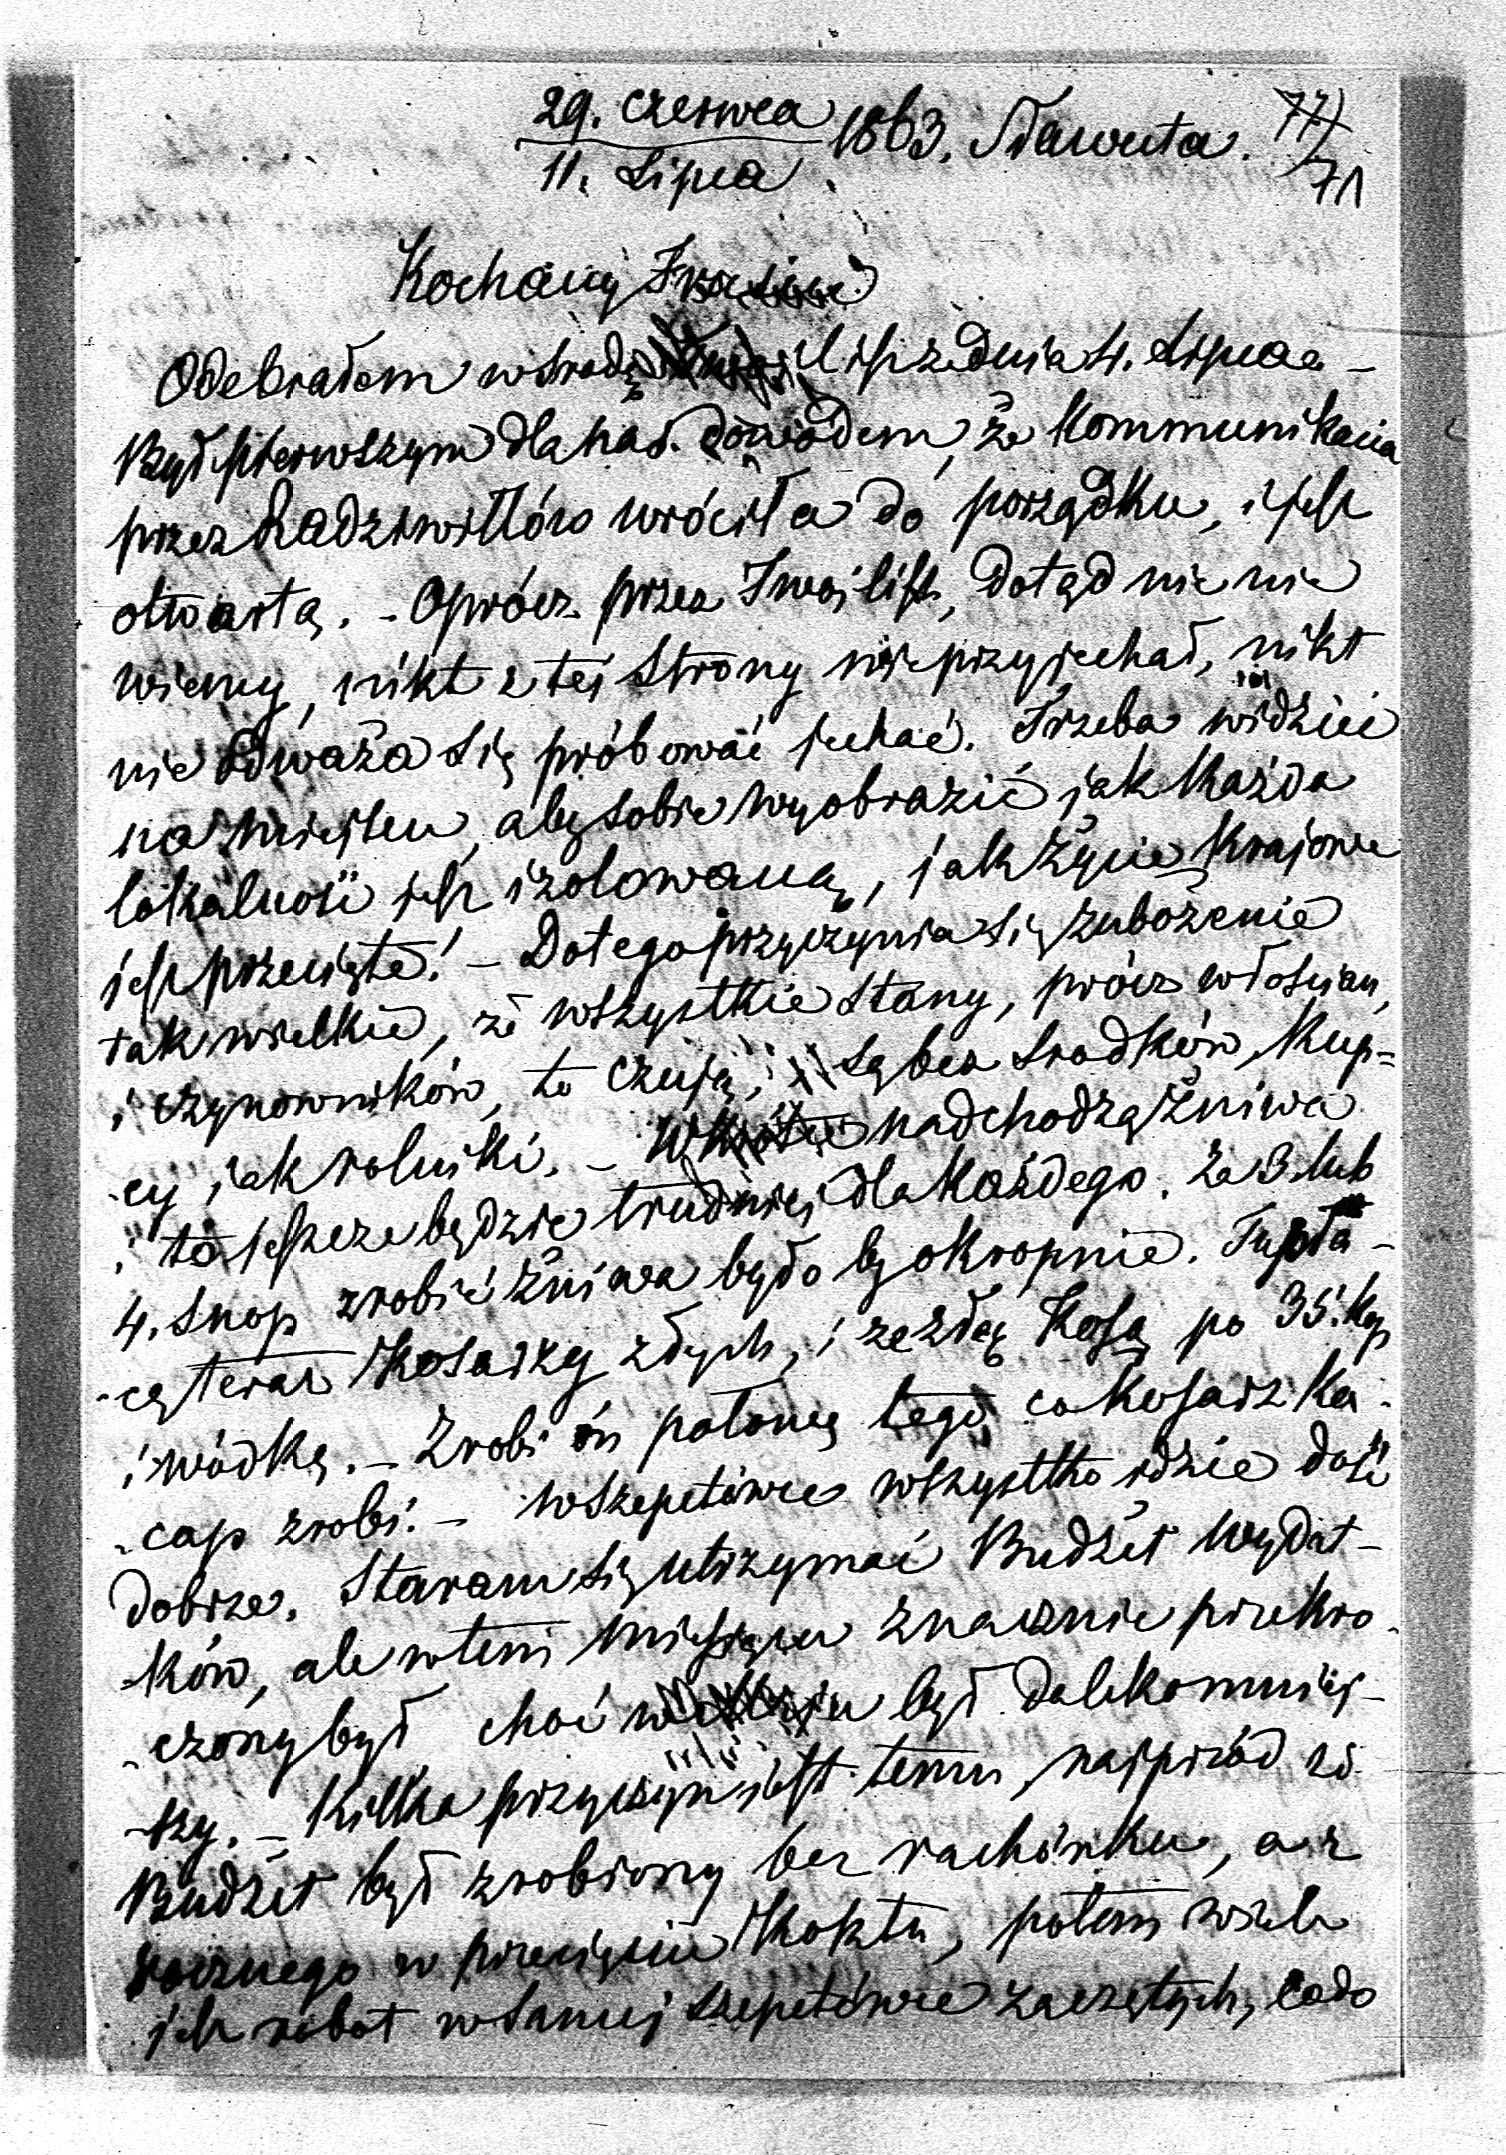 29. Czerwca
11. Lipca 1863. Sławuta. 77)
71
Kochany
Odebrałem w środę list z dnia 4. Lipca. –
Był pierwszym dla nas dowodem, że Kommunikacia
przez Radziwiłłów wróciła do porządku, i jest
otwartą. – Oprócz przez Twój list, dotąd nic nie
wiemy, nikt z tej strony nie przyjechał, nikt
nie odważa się próbować jechać. Trzeba widzieć
na miejscu, aby sobie wyobrazić jak każda
lokalność jest izolowaną, jak życie krajowe
jest przecięte! – Do tego przyczynia się zubożenie
tak wielkie, że wszystkie stany, prócz włościan,
i czynowników, to czują, są bez środków, kup=
-cy jak rolniki. – nadchodzą żniwa
i to jeszcze będzie trudniej dla każdego. Za 3. lub
4. snop zrobić żniwa było by okropnie. Tu płą-
-cą teraz Kosarzy złych, i ze złą Kosą po 35. kop
i wódką. – Zrobi on połowę tego co kosarz Ka-
-cap zrobi. – W Szepetówce wszystko idzie dość
dobrze. Staram się utrzymać Budżet wydat-
-ków, ale w tem miesiącu znacznie przekro-
-czony był, choć był daleko mniej-
-szy. – Kilka przyczyn jest temu, najprzód że
Budżet był zrobiony bez rachunku, a z
rocznego w przecięciu Kosztu, potem wiele
jest robot w samej Szepetówce zaczętych, co do